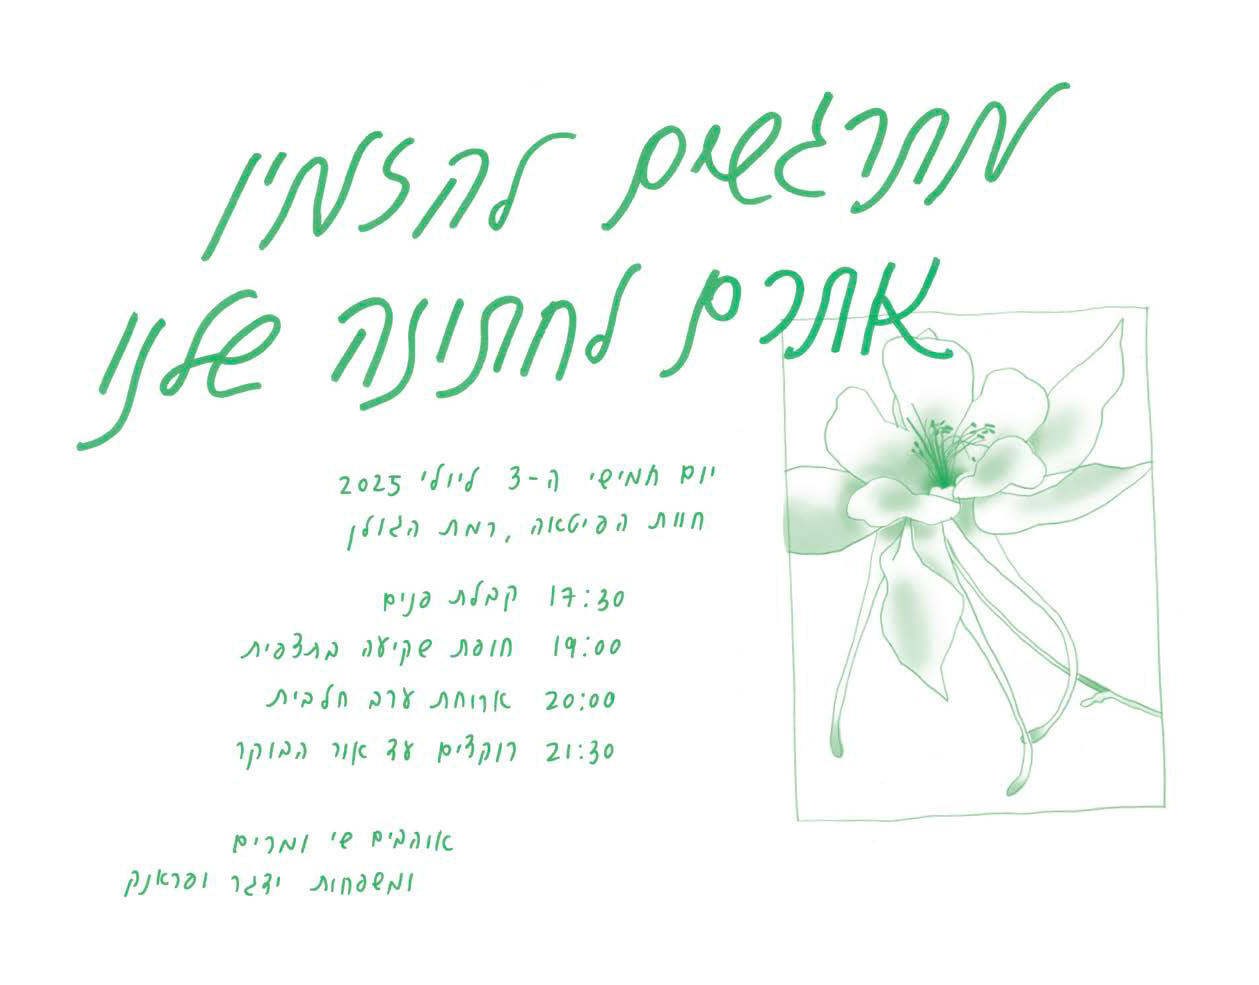 מתרגשים להזמין
אתכם לחתונה שלנו
יום חמישי ה-3 ליולי 2025
חוות הפיטאיה, רמת הגולן
17:30 קבלת פנים
19:00 חופת שקיעה בתצפית
20:00 ארוחת ערב חלבית
21:30 רוקדים עד אור הבוקר
אוהבים שי ומרים
ומשפחות ידגר ופראנק